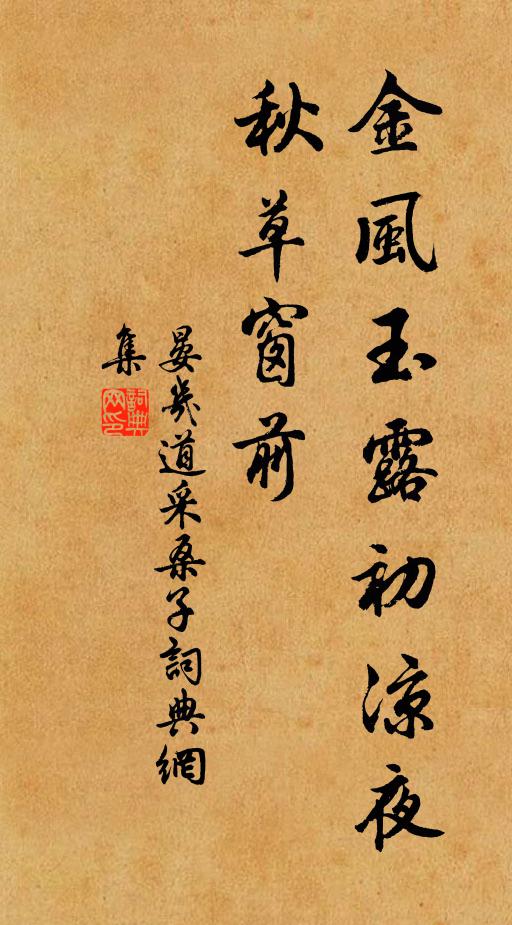 金風玉露初涼夜
秋草窗前
晏幾道采桑子詞典網
集
詞典
网印